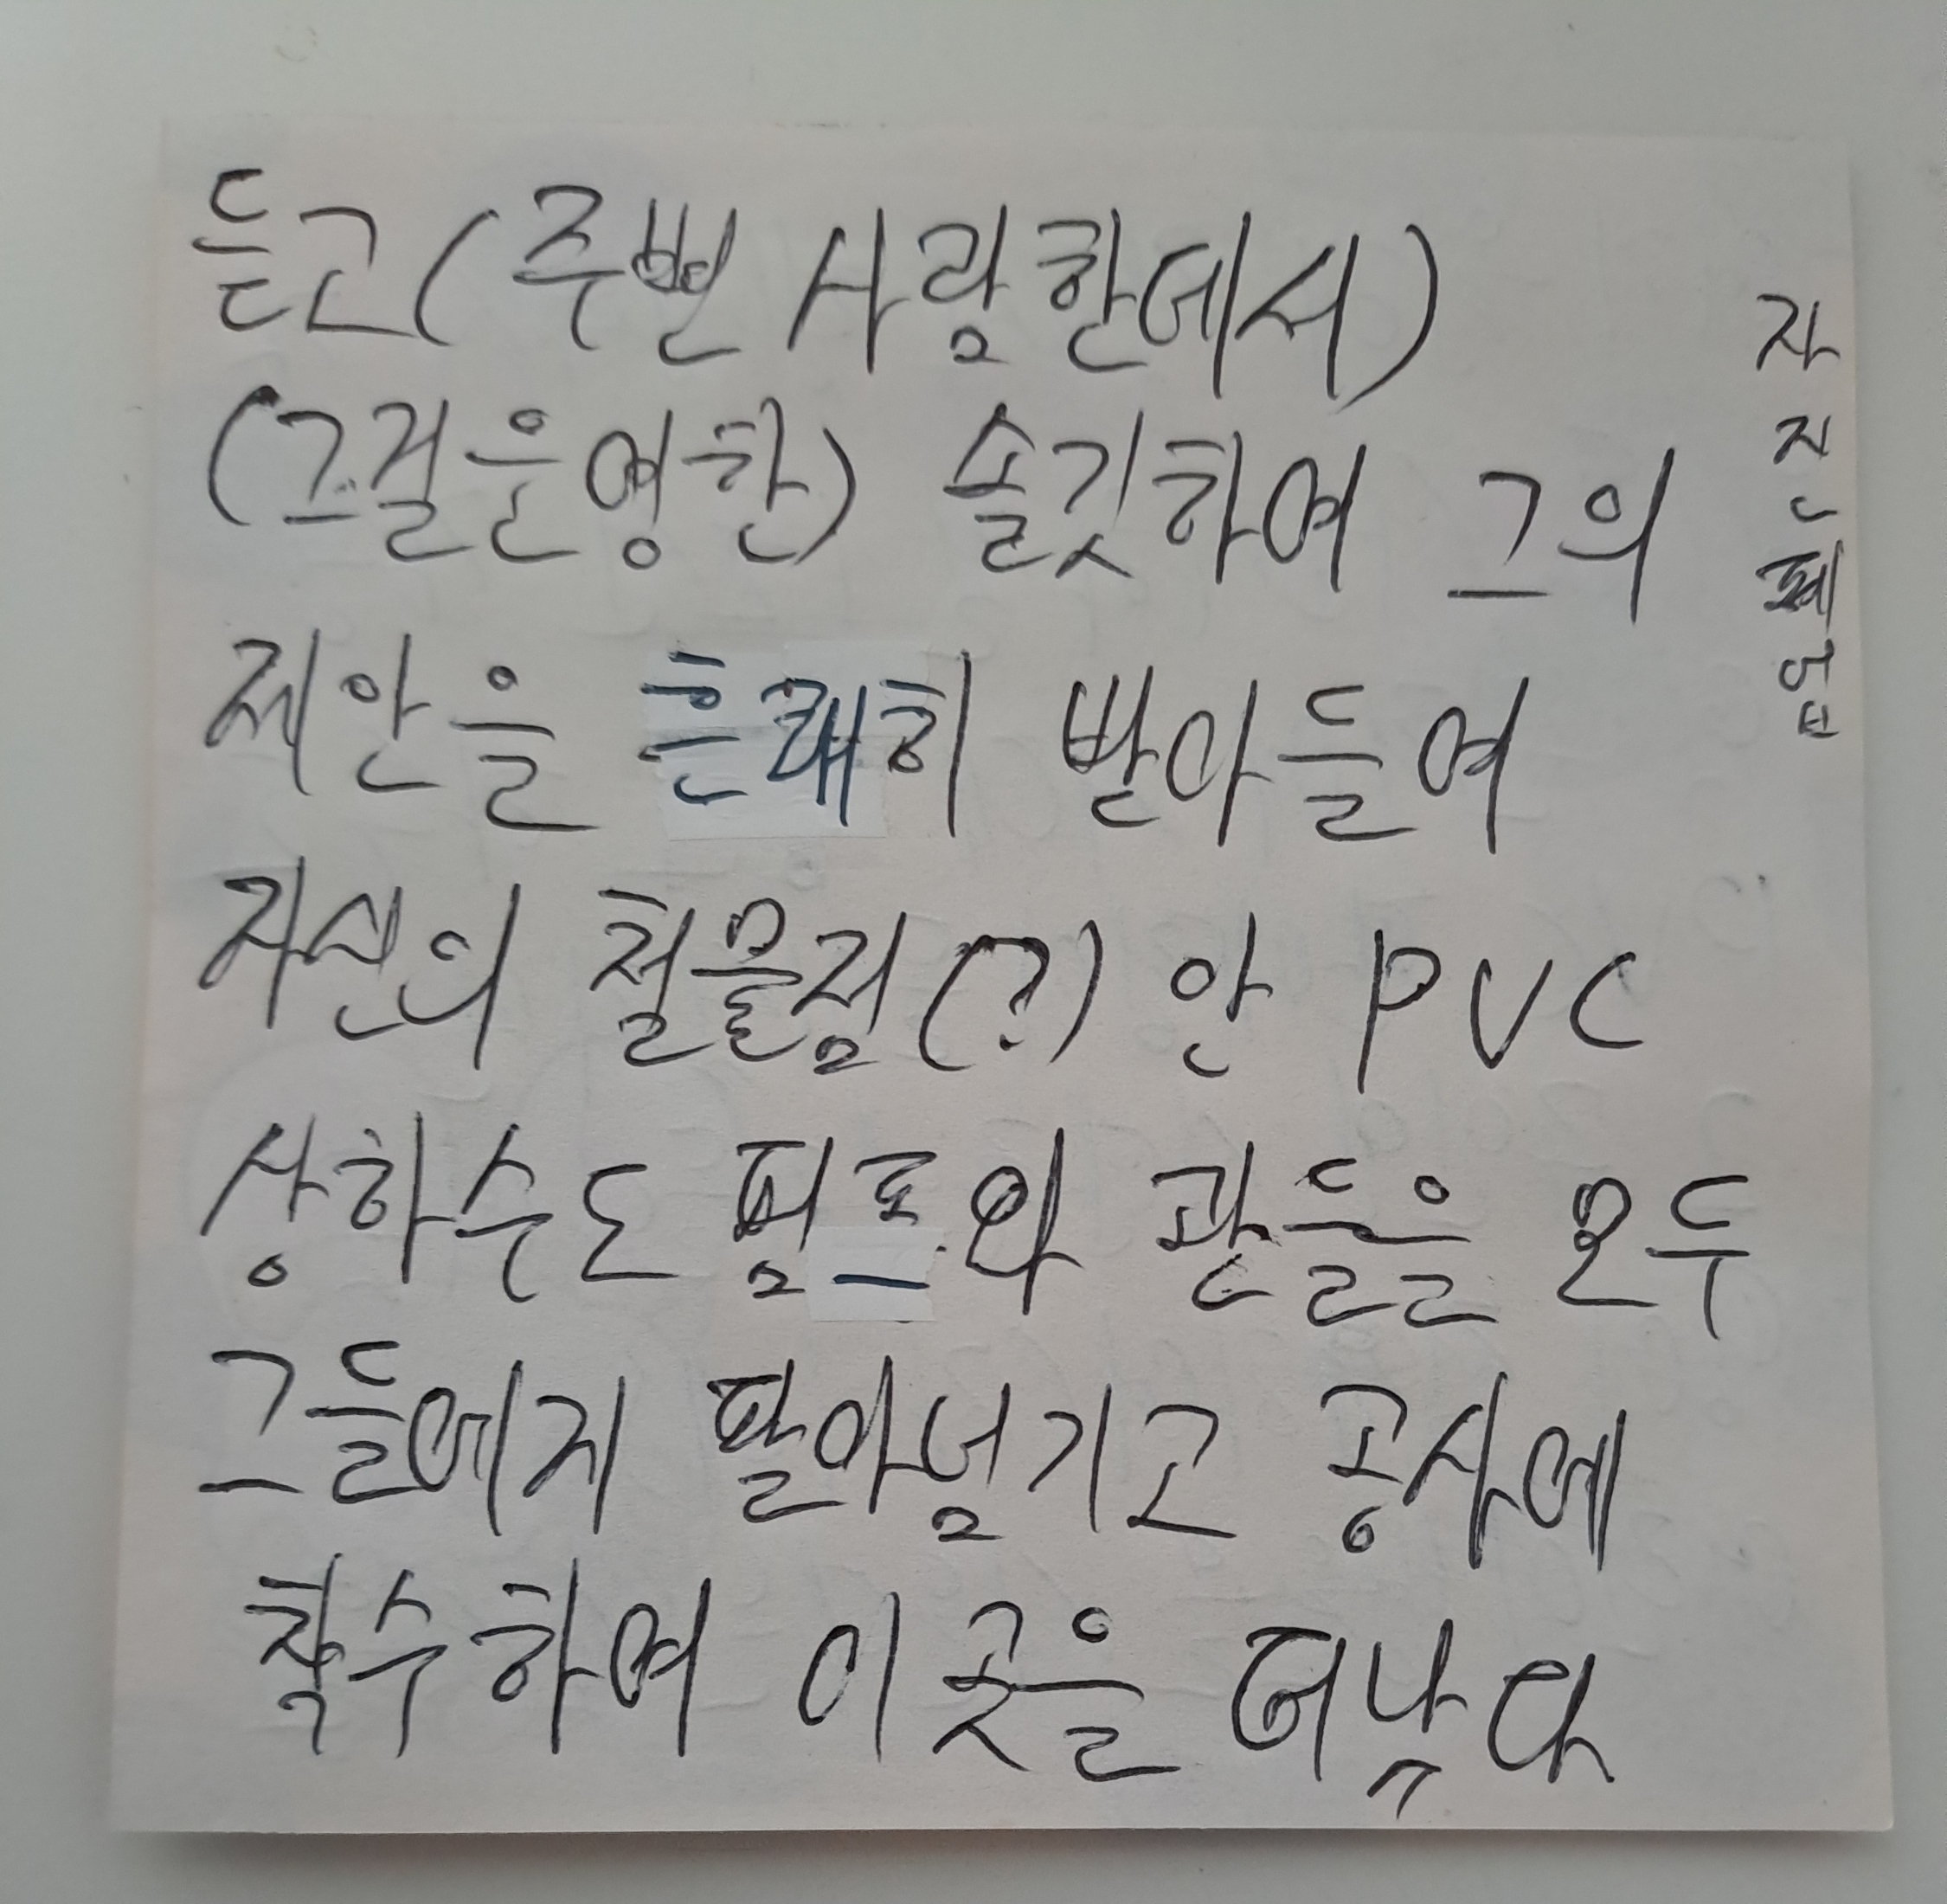 듣고(주변 사람한데서)
(그걸운영한) 솔깃하여 그의
제안을 흔쾌히 받아들여
자신의 철물점(?) 안 PVC
상하수도 펌프와 관들을 모두
그들에게 팔아넘기고 공사에
착수하여 이곳을 떠났다
자진폐업